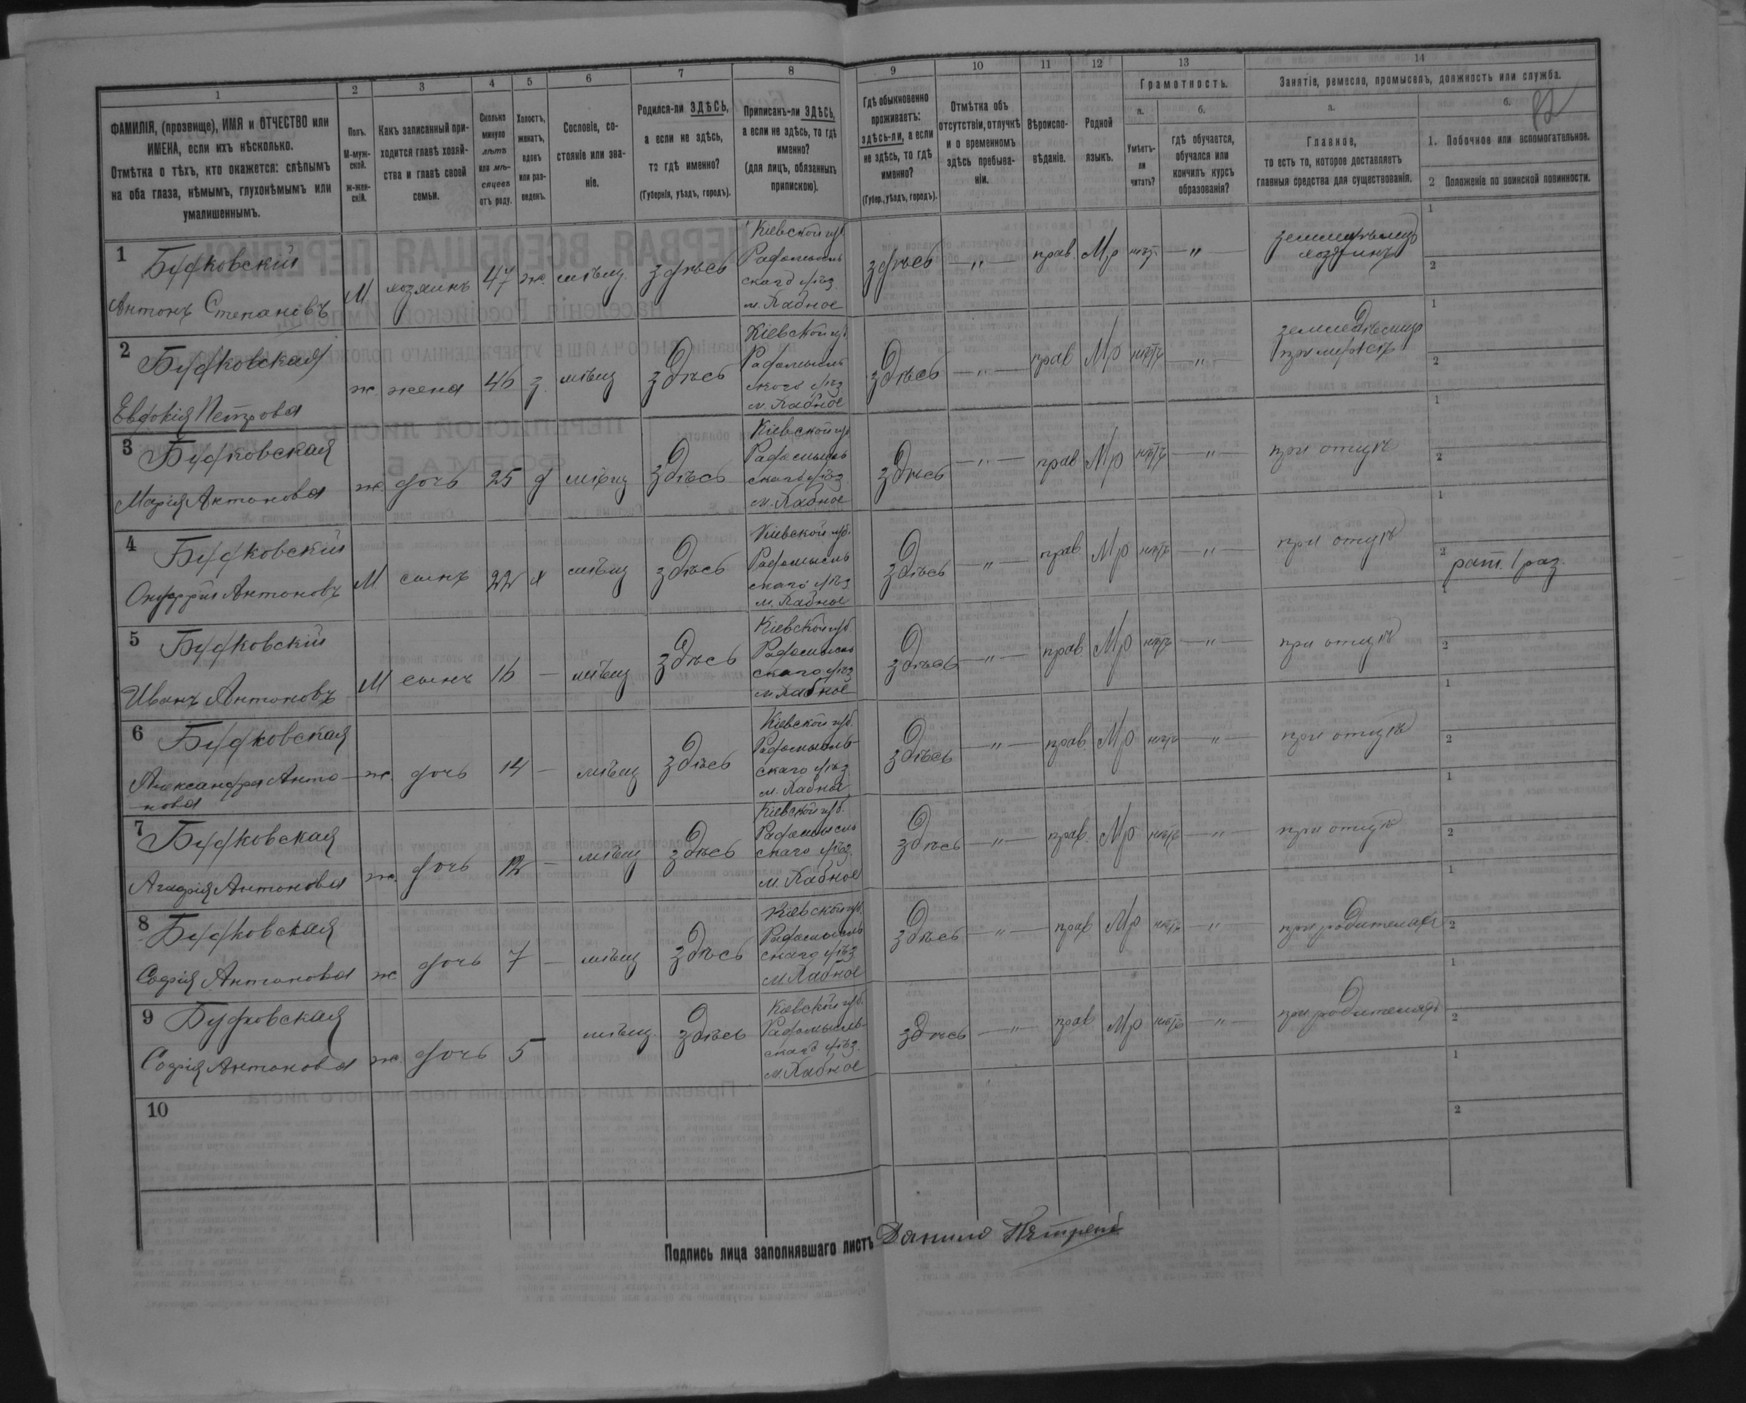 1
2
3
4
5
6
7
8
9
10
11
12
13
14
ФАМИЛІЯ, (прозвище), ИМЯ и ОТЧЕСТВО или
ИМЕНА, если ихъ нѣсколько.
Отмѣтка о тѣхъ, кто окажется: слѣпымъ
на оба глаза, нѣмымъ, глухонѣмымъ или
умалишеннымъ.
Полъ.
М-муж-
ской.
Ж-жен-
скій.
Какъ записанный при-
ходится главѣ хозяй-
ства и главѣ своей
семьи.
Сколько
минуло
лѣтъ
или мѣ-
сяцевъ
отъ роду.
Холостъ,
женатъ,
вдовъ
или раз-
веденъ.
Сословіе, со-
стояніе или зва-
ніе.
Родился-ли ЗДѢСЬ,
а если не здѣсь,
то гдѣ именно?
(Губернія, уѣздъ, городъ).
Приписанъ-ли ЗДѢСЬ,
а если не здѣсь, то гдѣ
именно?
(для лицъ, обязанныхъ
припискою).
Гдѣ обыкновенно
проживаетъ:
здѣсь-ли, а если
не здѣсь, то гдѣ
именно?
(Губер., уѣздъ, городъ).
Отмѣтка объ
отсутствіи, отлучкѣ
и о временномъ
здѣсь пребыва-
ніи.
Вѣроиспо-
вѣданіе.
Родной
языкъ.
Грамотность.
а.
Умѣетъ-
ли
читать?
б.
гдѣ обучается,
обучался или
кончилъ курсъ
образованія?
Занятіе, ремесло, промыселъ, должность или служба.
а.
Главное,
то есть то, которое доставляетъ
главныя средства для существованія.
б.
1. Побочное или вспомогательное.
2 Положеніе по воинской повинности.
1 Будковскій
Антонъ Степановъ
М хозяинъ 47 ж. мѣщ здѣсь
Кіевской губ
Радомысль
скаго уѣз
м. Хабное
здѣсь — " — прав Мр нѣтъ — " —
земледѣлецъ
хозяинъ
1
2
2 Будковская
Евдокія Петрова
ж жена 46 з. мѣщ здѣсь
Кіевской губ
Радомысль
скаго уѣз
м. Хабное
здѣсь — " — прав Мр нѣтъ — " —
1
2
3 Будковская
Марія Антонова
ж дочь 25 д мѣщ здѣсь
Кіевской губ
Радомысль
скаго уѣз
м. Хабное
здѣсь — " — прав Мр нѣтъ — " — при отцѣ
1
2
4 Будковскій
Онуфрій Антоновъ
М сынъ 22 х мѣщ здѣсь
Кіевской губ.
Радомысль
скаго уѣз
м. Хабное
здѣсь — " — прав Мр нѣтъ — " — при отцѣ
1
2 рат. 1 раз.
5 Будковскій
Иванъ Антоновъ
М сынъ 16 — мѣщ здѣсь
Кіевской губ.
Радомысль
скаго уѣз
м. Хабное
здѣсь — " — прав Мр нѣтъ — " — при отцѣ
1
2
6 Будковская
Александра Анто-
нова
ж. дочь 14 — мѣщ здѣсь
Кіевской губ.
Радомысль-
скаго уѣз
м. Хабное
здѣсь — " — прав Мр нѣтъ — " — при отцѣ
1
2
7 Будковская
Антонова
ж. дочь 12 — мѣщ здѣсь
Кіевской губ.
Радомысль
скаго уѣз
м. Хабное
здѣсь — " — прав. Мр нѣтъ — " — при отцѣ
1
2
8 Будковская
Софія Антонова
ж дочь 7 — мѣщ здѣсь
Кіевской губ.
Радомысль
скаго уѣз
м Хабное
здѣсь — " — прав Мр нѣтъ — " — при родителяхъ
1
2
9 Будковская
Софія Антонова
ж. дочь 5 мѣщ. здѣсь
Кіевской губ.
Радомысль-
скаго уѣз.
м. Хабное
здѣсь — " — прав Мр нѣтъ — " — при родителяхъ
1
2
10
1
2
Подпись лица заполнявшаго листъ Данило